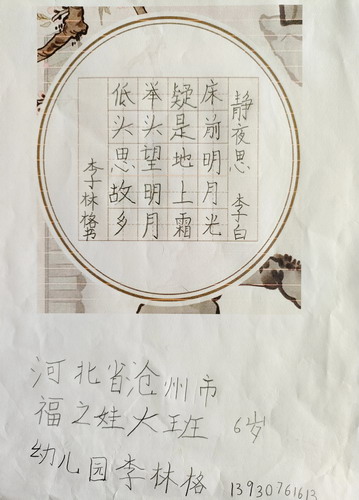 静夜思 李白
床前明月光
疑是地上霜
举头望明月
低头思故乡
李林格书
河北省沧州市
福之娃大班 6岁
幼儿园李林格 13930761613